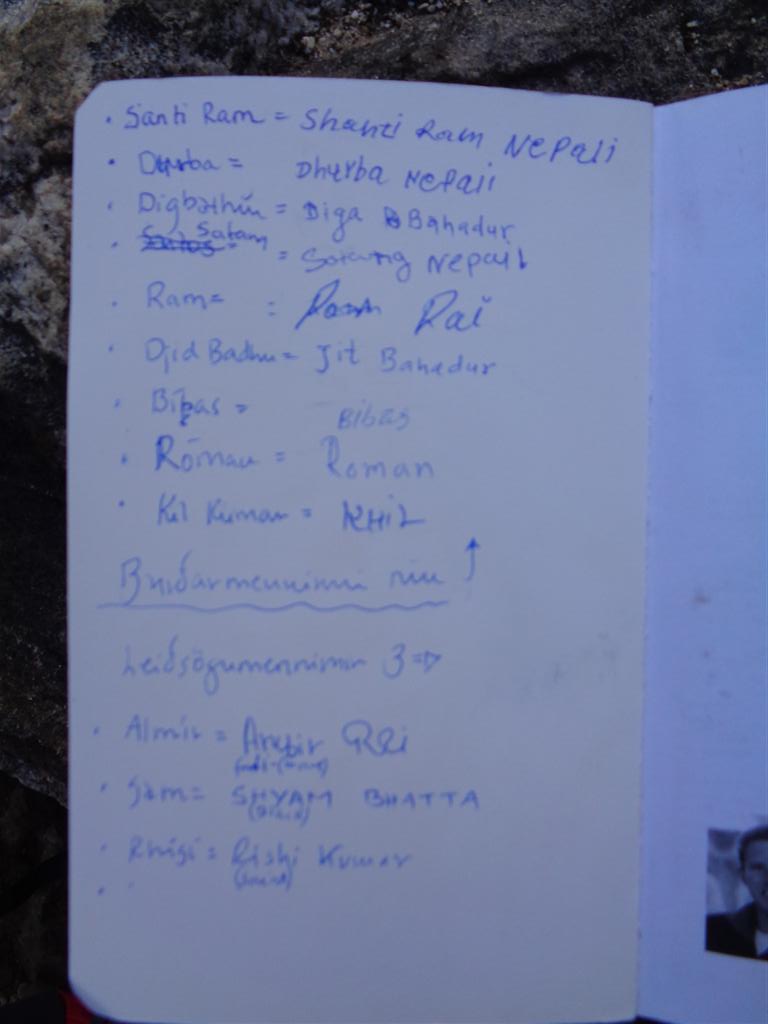 • Santi Ram = Shanti Ram Nepali
• Dhurba = Dhurba Nepali
• Digbathin = Diga Bahadur
• Satam = Sarang Nepali
• Ram = : Ram Rai
• Djid Badhu = Jit Bahadur
• Bibas = Bibas
• Róman = Roman
• Kil Kumar = KHIL
Burðarmennirnir níu ↑
Leiðsögumennirnir 3 ⇒
• Almir = Rai
• Sjam = SHYAM BHATTA
• Rhisi = Rishi Kumar